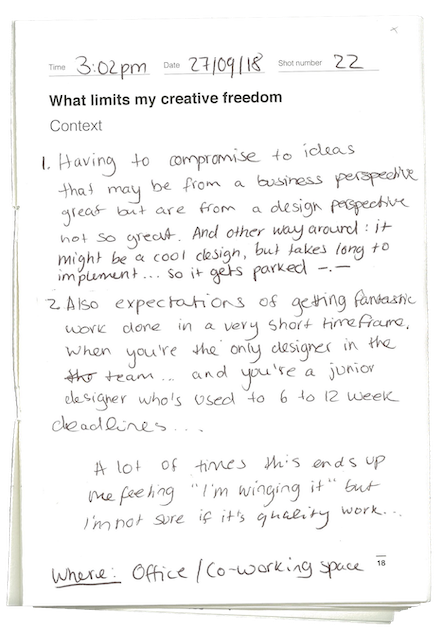 Time 3:02pm Date 27/09/18 Shot number 22
What limits my creative freedom
Context
1. Having to compromise to ideas
that may be from a business perspective
great but are from a design perspective
not so great. And other way around: it
might be a cool design, but takes long to
implement... so it gets parked -.-
2. Also expectations of getting fantastic
work done in a very short timeframe.
When you're the only designer in the
the team... and you're a junior
designer who's used to 6 to 12 week
deadlines...
A lot of times this ends up
me feeling "I'm winging it" but
I'm not sure if it's quality work...
Where: Office / Co-working space
18